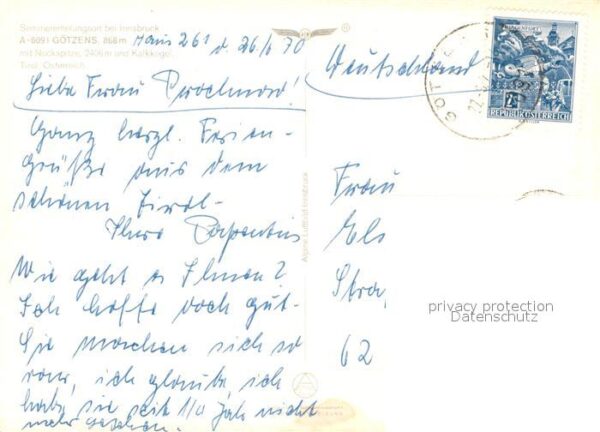 Sommererholungsort bei Innsbruck
A-6091 GÖTZENS, 868 m
mit Nockspitze, 2406 m und Kalkkögel
Tirol, Österreich
Haus 261 d. 26/6 70
Liebe Frau
Ganz herzl. Ferien-
grüße aus dem
schönen Tirol-
Ihre
Wie geht es Ihnen?
Ich hoffe doch gut-
Sie machen sich so
rar, ich glaube, ich
habe Sie seit 1/2 Jahr nicht
mehr gesehen.
Alpine Luftbild Innsbruck
Deutschland
REPUBLIK ÖSTERREICH
Frau
Els
Stra
62
privacy protection
Datenschutz